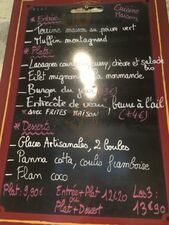 Entrées
Cuisine
Maison
- Terrine maison au poivre vert
- Muffin montagnard
Plats
- Lasagnes chèvre et salade
bio
- Filet mignon à la normande
- Burger du
- Entrecôte de veau, beurre à l'ail
* avec FRITES MAISON (+4€)
Desserts
- Glaces Artisanales, 2 boules
- Panna cotta, coulis framboise
- Flan coco
Plat: 9,90€
Entrée + Plat 12€20
ou
Plat + Dessert
Les 3:
13€90